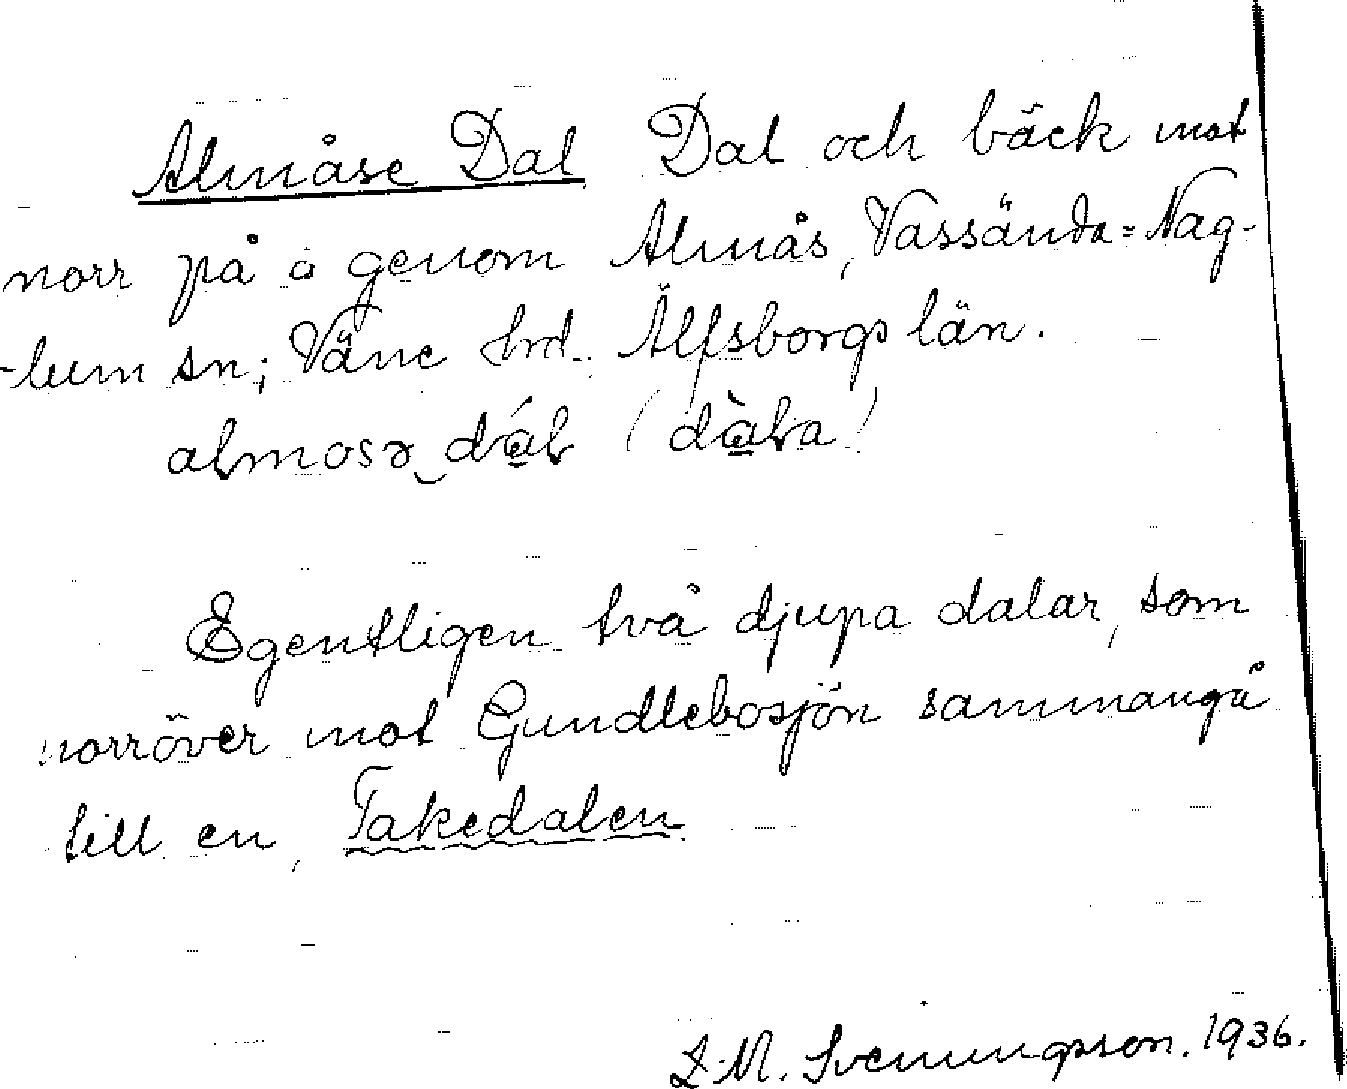 Almåse Dal Dal och bäck mot
norr på o genom Almås, Vassända=Nag-
-lum sn; Väne hrd. Älfsborgs län.
almosə dál (dàla)
Egentligen två djupa dalar, som
norröver mot Gundlebosjön sammangå
till en, Takedalen
L. M. Svenungsson. 1936.